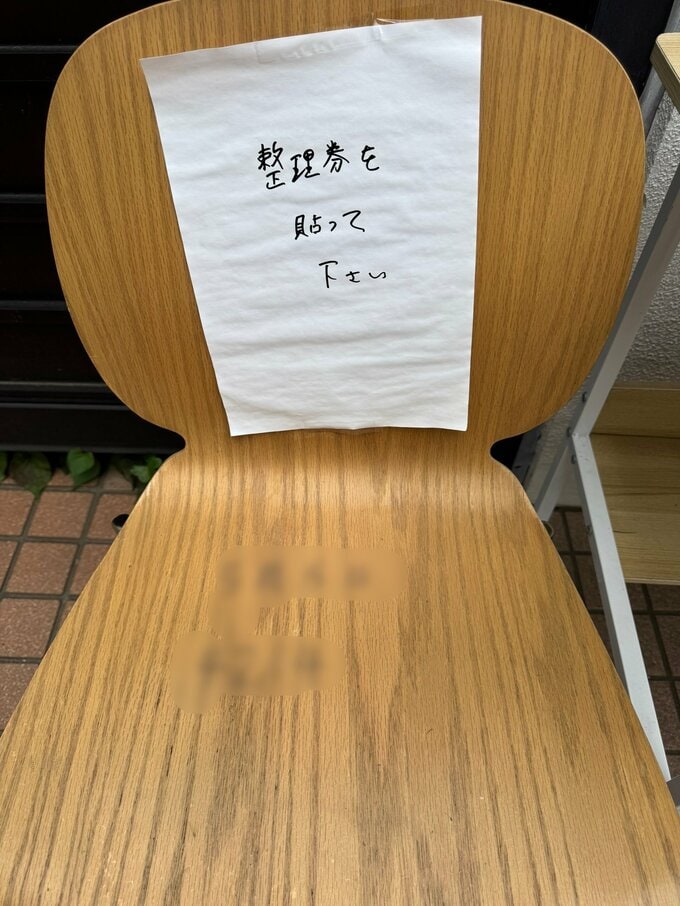 整理券を
貼って
下さい